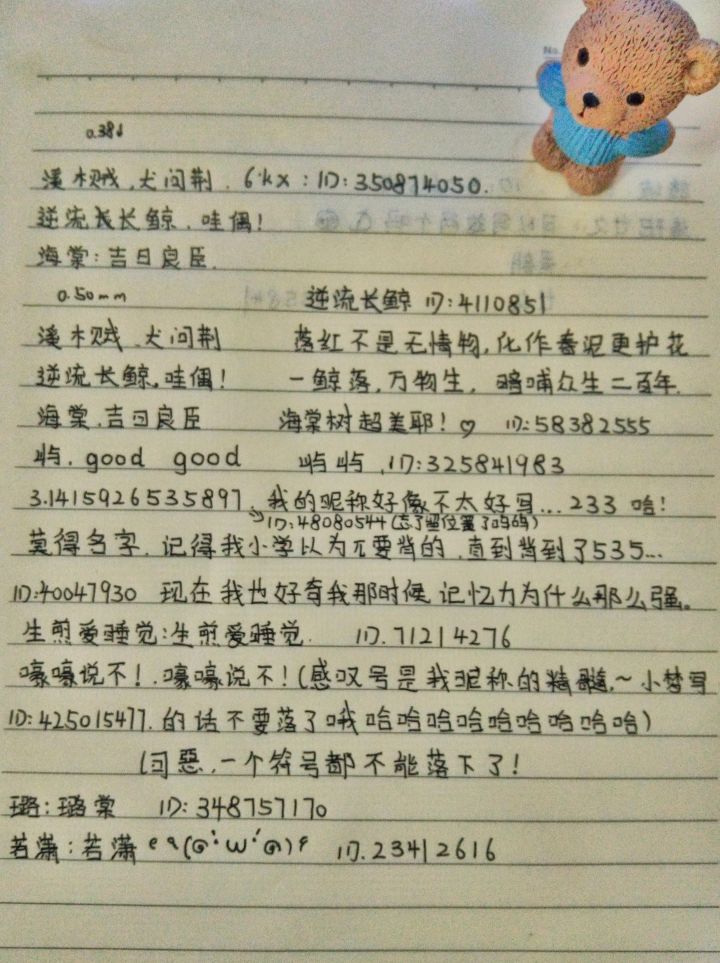 0.38
溪木贼,犬问荆. 6·kx:ID:350874050.
逆流长长鲸.哇偶!
海棠:吉日良臣.
0.50mm
逆流长鲸 ID:4110851
溪木贼.犬问荆 落红不是无情物,化作春泥更护花
逆流长鲸,哇偶! 一鲸落,万物生, 哺众生二百年.
海棠.吉日良臣 海棠树超美耶!♡ ID:58382555
屿.good good 屿屿.ID:325841983
3.1415926535897 我的昵称好像不太好写...233 哈!
ID:48080544(忘了留位置了呜呜)
莫得名字.记得我小学以为π要背的.直到背到了535...
ID:40047930 现在我也好奇我那时候记忆力为什么那么强。
生煎爱睡觉:生煎爱睡觉. ID.71214276
嚎嚎说不!.嚎嚎说不!(感叹号是我昵称的精髓,~小梦写
ID:425015477.的话不要落了哦哈哈哈哈哈哈哈哈哈)
(可恶,一个符号都不能落下了!
璐:璐棠 ID:348757170
若潇:若潇 ٩(๑˙ω˙๑)۶ ID.23412616